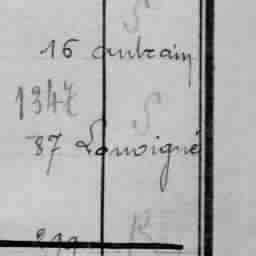 S
16 Antrain
1347
S
37 Louvigné
R